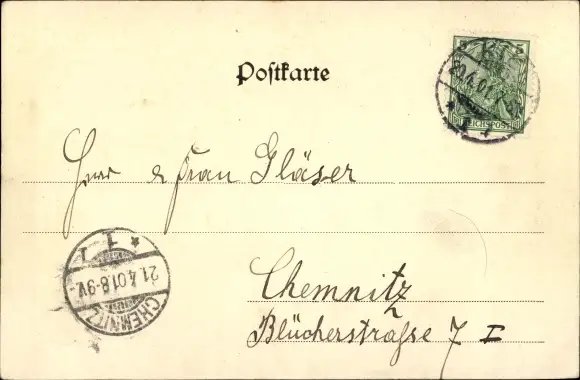 5 5
20.4.01
REICHSPOST
* 1 f
Postkarte
Herr & Frau Gläser
* 1 f
21.4.01.8-9V.
CHEMNITZ
Chemnitz
Blücherstraße 7 I